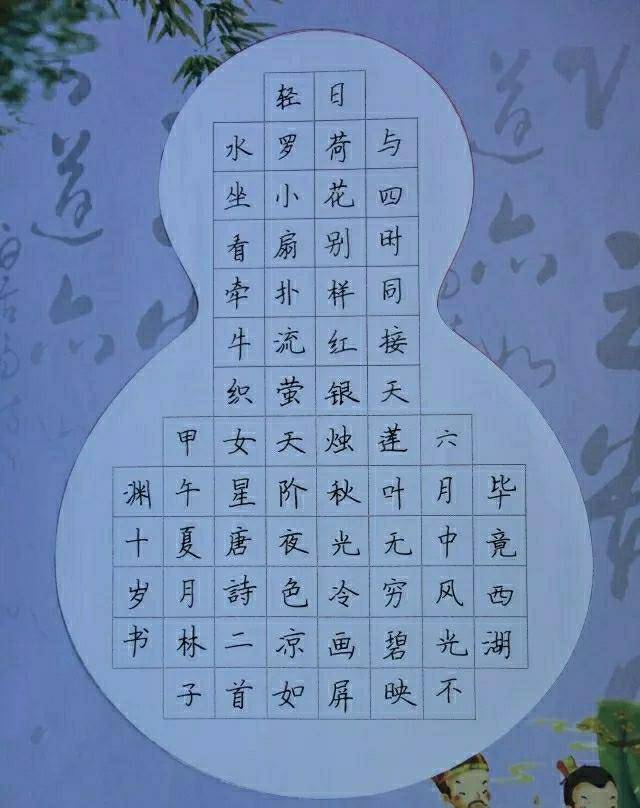 毕竟西湖
六月中风光不
与四时同接天莲叶无穷碧映
日荷花别样红银烛秋光冷画屏
轻罗小扇扑流萤天阶夜色凉如
水坐看牵牛织女星唐詩二首
甲午夏月林子
渊十岁书